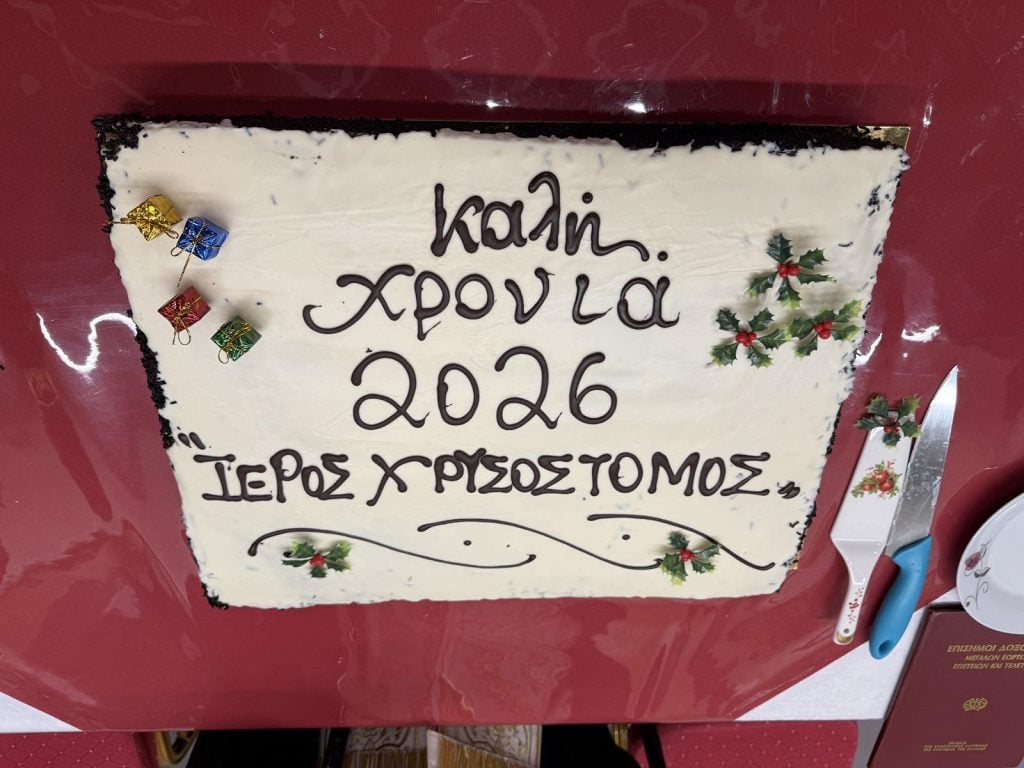 καλή
χρονιά
2026
"ΙΕΡΟΣ ΧΡΥΣΟΣΤΟΜΟΣ"
ΕΠΙΣΗΜΟΙ
ΜΕΓΑΛΩΝ
ΕΠΕΤΕΙΩΝ ΚΑΙ